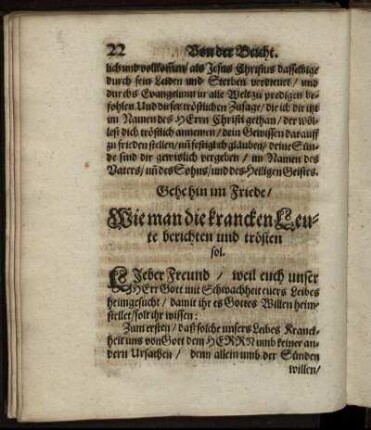 22 Von der Beicht.
lich und vollkommen / als Jesus Christus dasselbige
durch sein Leiden und Sterben verdienet / und
durchs Evangelium in alle Welt zu predigen be-
fohlen. Und dieser tröstlichen Zusage / die ich dir itzt
im Namen des HErrn Christi gethan / der wöl-
lest dich tröstlich annemen / dein Gewissen darauff
zu frieden stellen / uñ festiglich glauben / deine Sün-
de sind dir gewißlich vergeben / im Namen des
Vaters / uñ des Sohns / und des Heiligen Geistes.
Gehe hin im Friede /
Wie man die krancken Leu-
te berichten und trösten
sol.
LIeber Freund / weil euch unser
HErr Gott mit Schwachheit euers Leibes
heimgesucht / damit ihr es Gottes Willen heim-
stellet / solt ihr wissen:
Zum ersten / daß solche unsers Leibes Kranck-
heit uns von Gott dem HERRN umb keiner an-
dern Ursachen / denn allein umb der Sünden
willen /